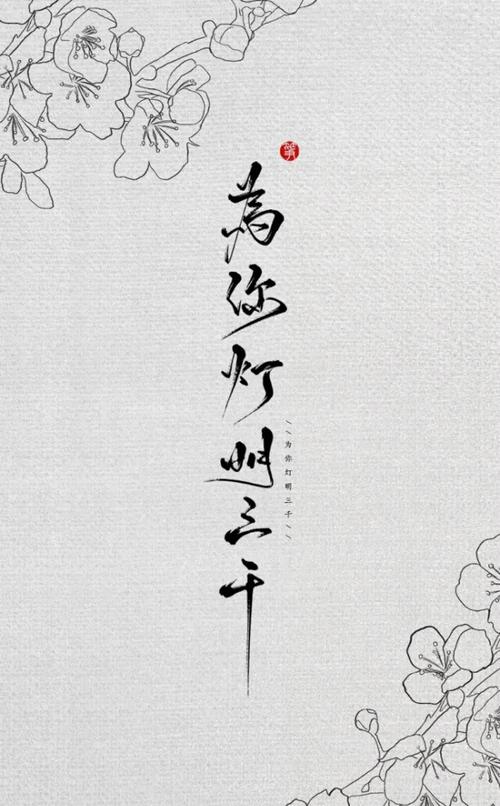 為你灯明三千
\\为你灯明三千\\